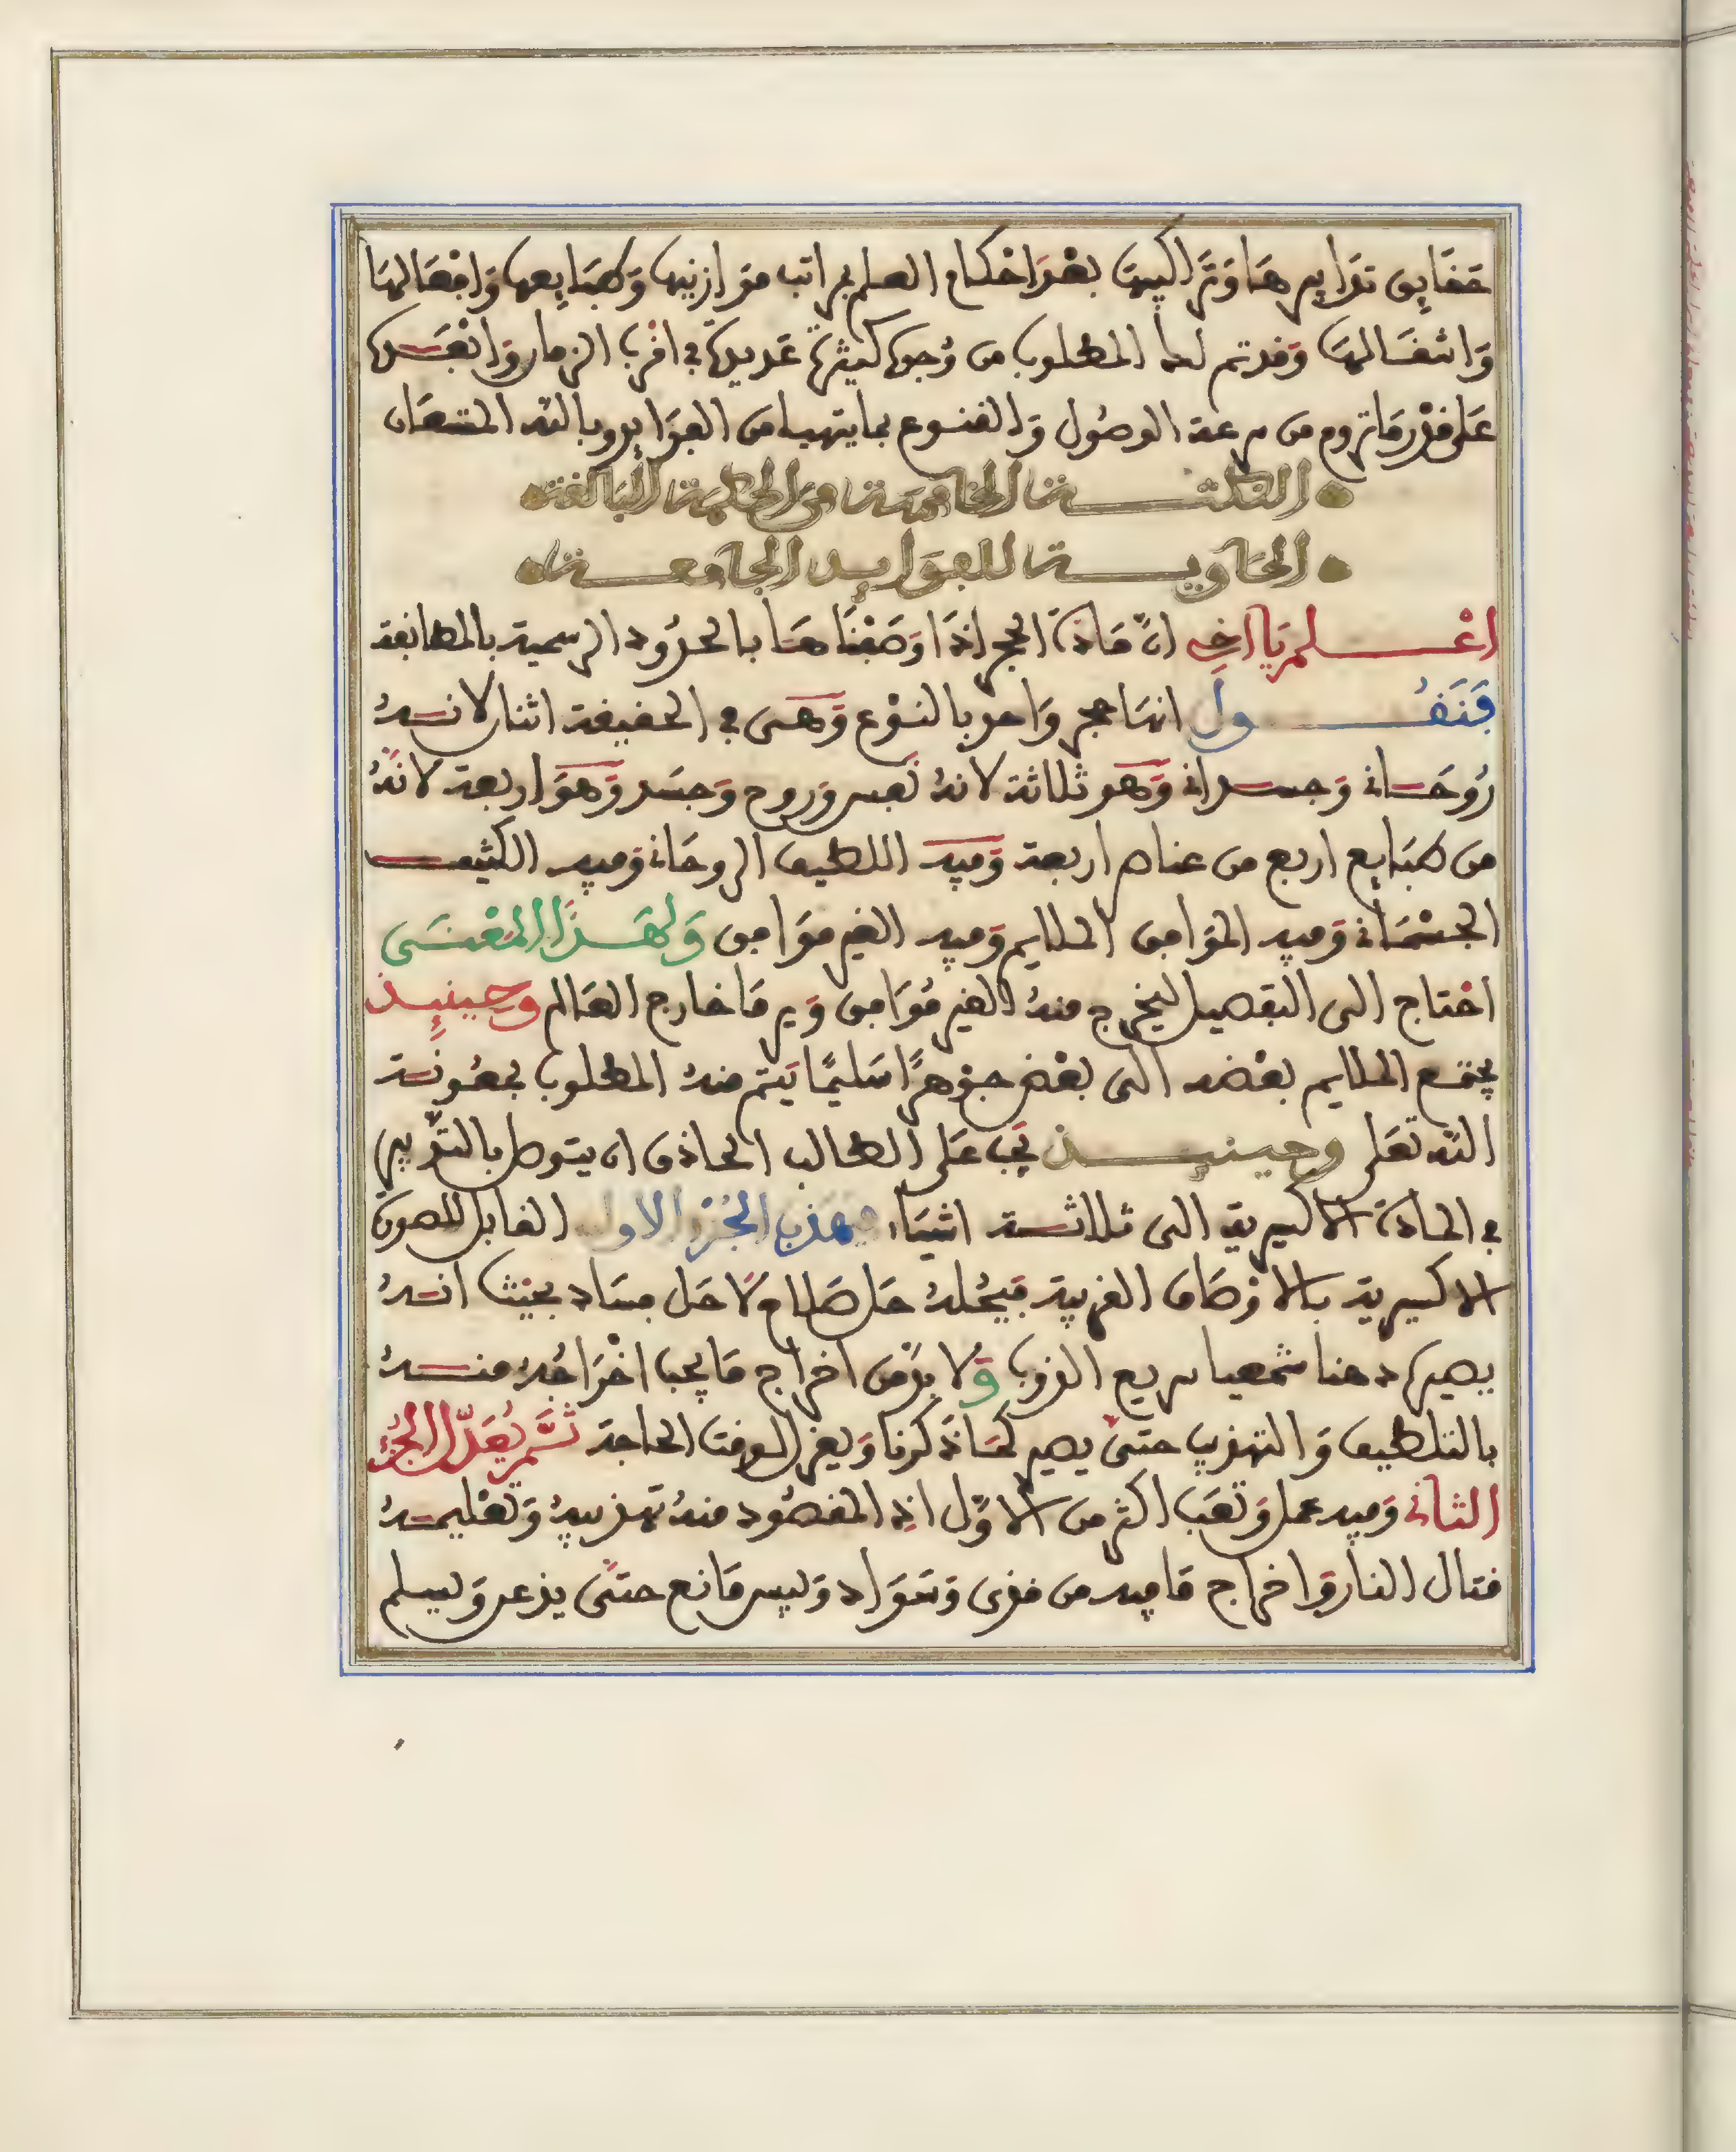 حقايق تدابيرها وتراكيبها بعد احكام العلم بمراتب موازينها وطبايعها وافعالها
واشغالها وقد تم لك المطلوب من وجوه كثيرة عديدة في اقرب الزمان وابعده
على قدر ما تروم من سرعة الوصول والقنوع بما يتهيا من الفوايد وبالله المستعان
النكتة الخامسة من الحكمة البالغة
الحاوية للفوايد الجامعة
اعلم يا اخي ان مادة الحجر اذا وصفناها بالحدود الرسمية بالمطابقة
فنقول انها حجر واحد بالنوع وهى في الحقيقة اثنان لانه
روحانى وجسدانى وهو ثلاثة لانه نفس وروح وجسد وهو اربعة لانه
من طبايع اربع من عناصر اربعة وفيه اللطيف الروحانى وفيه الكثيف
الجسمانى وفيه الموافق الملايم وفيه الغير موافق ولهذا المعنى
احتاج الى التفصيل ليخرج منه الغير موافق ويرما خارج العالم وحينيذ
يجتمع الملايم بعضه الى بعض جوهرا سليما يتم منه المطلوب بمعونة
الله تعلى وحينيذ يجب على الطالب الحاذق ان يتوصل بالتدبير
في المادة الاكسيرية الى ثلاثة اشياء فيهذب الجزء الاول القابل للصورة
الاكسيرية بالاوصاف القريبة فيحله حل صلاح لا حل فساد بحيث انه
يصير دهنا شمعيا سريع الذوب ولا بد من اخراج ما يجب اخراجه منه
بالتلطيف والتهذيب حتى يصير كما ذكرنا ويعزل لوقت الحاجة ثم يعدل الجزء
الثانى وفيه عمل وتعب اكثر من الاول اذ المقصود منه تهذيبه وتعليمه
قتال النار واخراج ما فيه من قذى وسواد وليس مانع حتى يذعر ويسلم